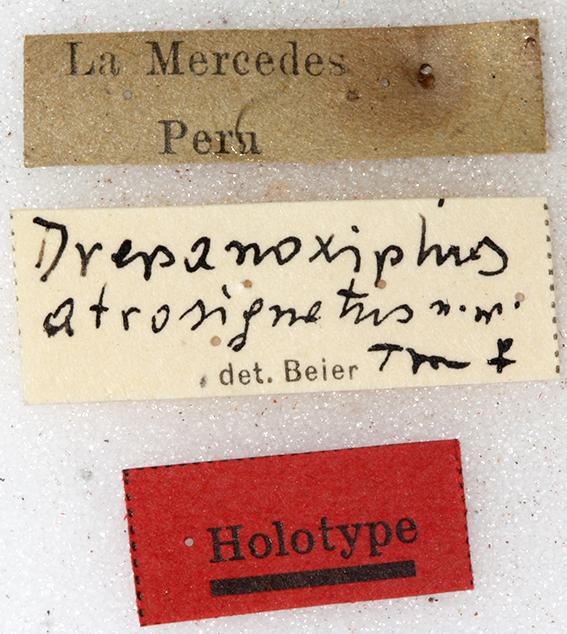 La Mercedes
Peru
Drepanoxiphus
atrosignatus n. n.
det. Beier Type ♀
Holotype